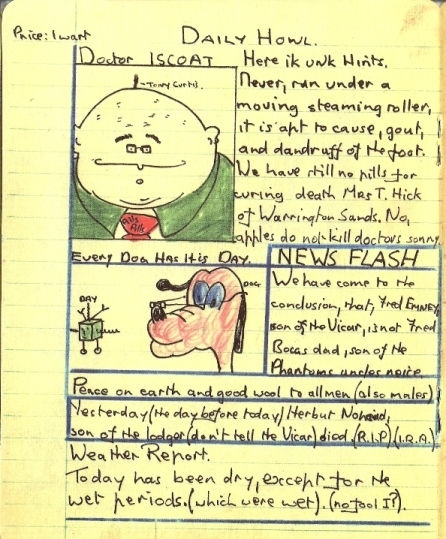 Price: 1 wart
DAILY HOWL.
Doctor ISCOAT
Tony Curtis.
Pills
Pills
Here ik unk Hints.
Never, run under a
moving steaming roller,
it is apt to cause, gout,
and dandruff of the foot.
We have still no pills for
curing death Mrs T. Hick
of Warrington Sands. No,
apples do not kill doctors sonny
EVERY DOG HAS IT IS DAY.
DAY
DOG
NEWS FLASH
We have come to the
conclusion, that, Fred Emney,
son of the Vicar, is not Fred
Bocas dad, son of the
Phantoms uncles neice
Peace on earth and good wool to all men (also males)
Yesterday (the day before today) Herbut
son of the lodger (don't tell the Vicar) died. (R.I.P) (I.R.A.)
Weather Report.
Today has been dry, except for the
wet periods. (which were wet). (no fool I?).